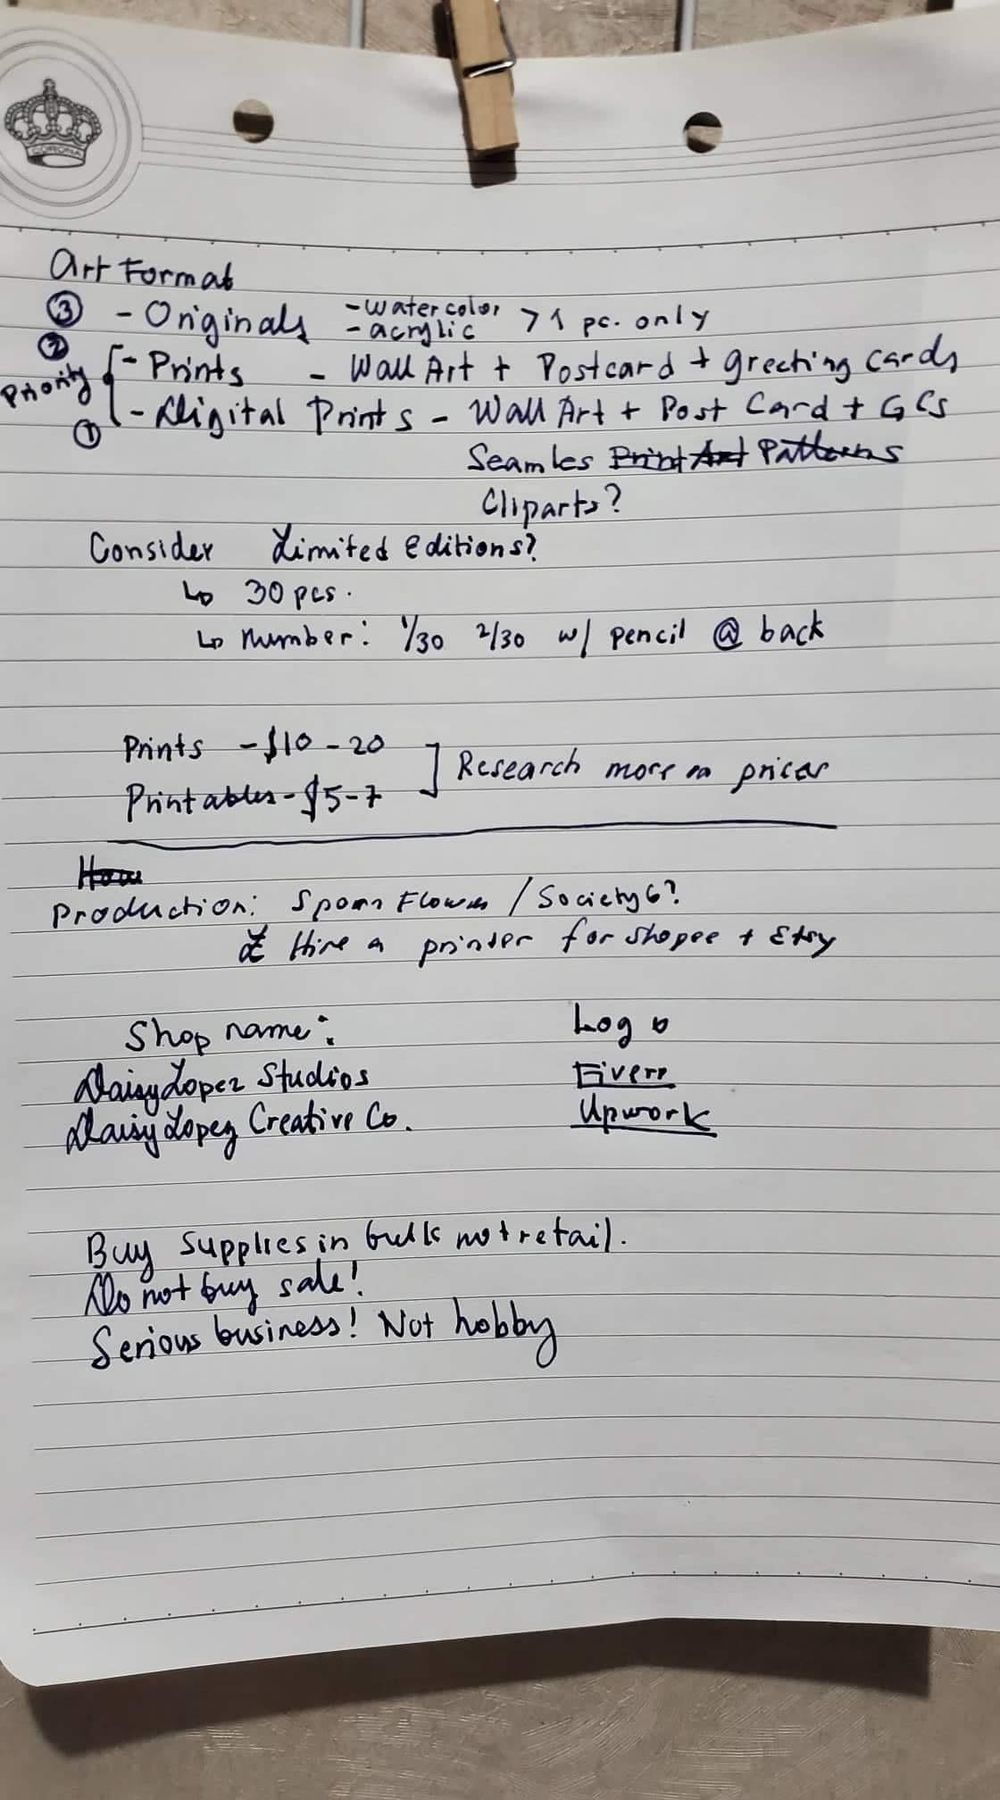 CORONA
Art Format
③ - Originals - watercolor > 1 pc. only
- acrylic
② - Prints - Wall Art + Postcard + greeting cards
Priority
① - Digital Prints - Wall Art + Post Card + GCs
Seamles Print Art Patterns
Cliparts?
Consider Limited Editions?
↳ 30 pcs.
↳ Number: 1/30 2/30 w/ pencil @ back
Prints - $10 - 20
Printables - $5 - 7 ] Research more on prices
How
Production: Spoon Flower / Society6?
Hire a printer for shopee + Etsy
Shop name: Logo
DaisyLopez Studios Fiverr
DaisyLopez Creative Co. Upwork
Buy supplies in bulk not retail.
Do not buy sale!
Serious business! Not hobby